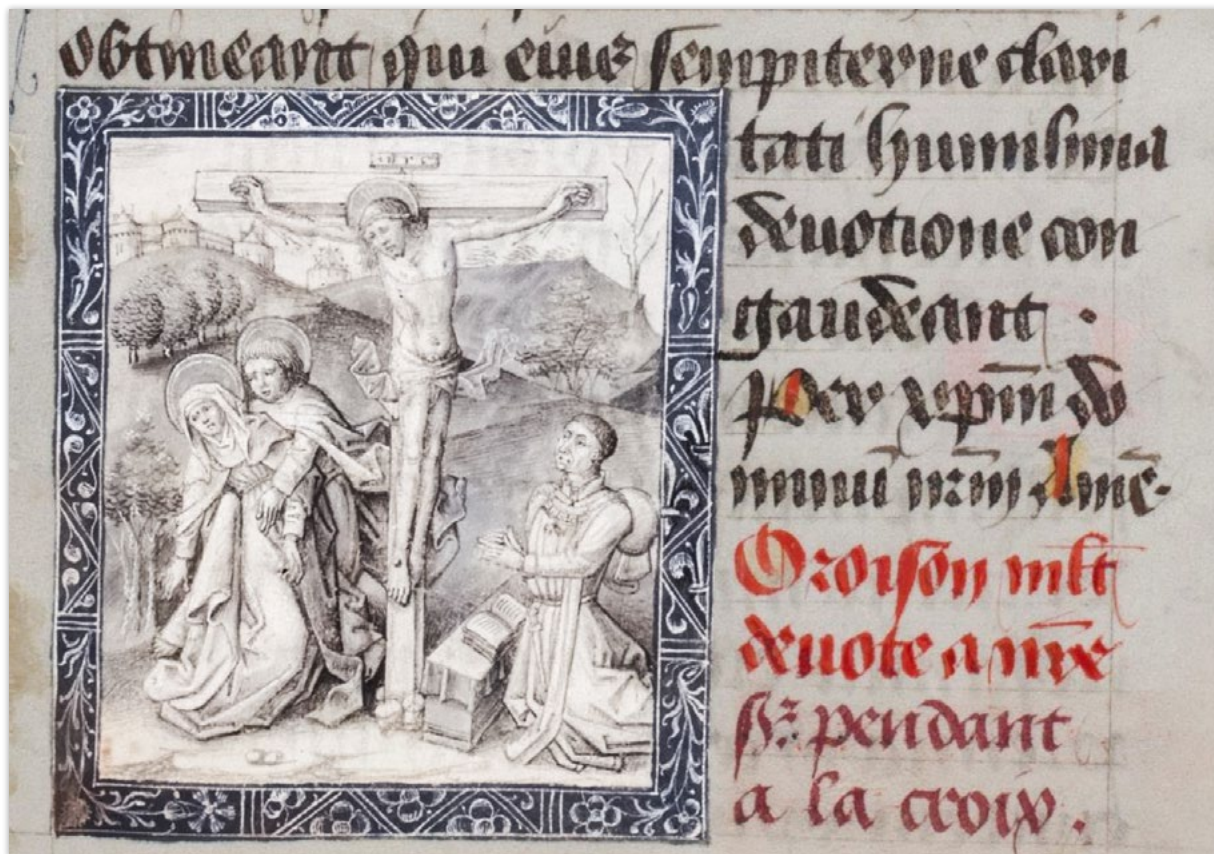 obtineant qui eiuꝫ sempiterne clari
tati humilima
deuotione con
gaudeant .
Per xp̄m do
minū nr̄m Amē.
Oroison mlt̄
deuote a nr̄e
sꝛ̄ pendant
a la croix .